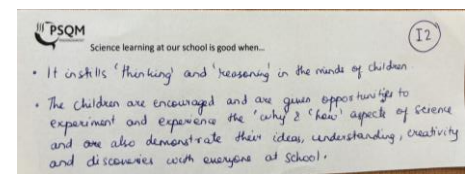 PSQM
I2
Science learning at our school is good when...
• It instills 'thinking' and 'reasoning' in the minds of children
• The children are encouraged and are given opportunities to
experiment and experience the 'why' & 'how' aspect of science
and are also demonstrate their ideas, understanding, creativity
and discoveries with everyone at school.